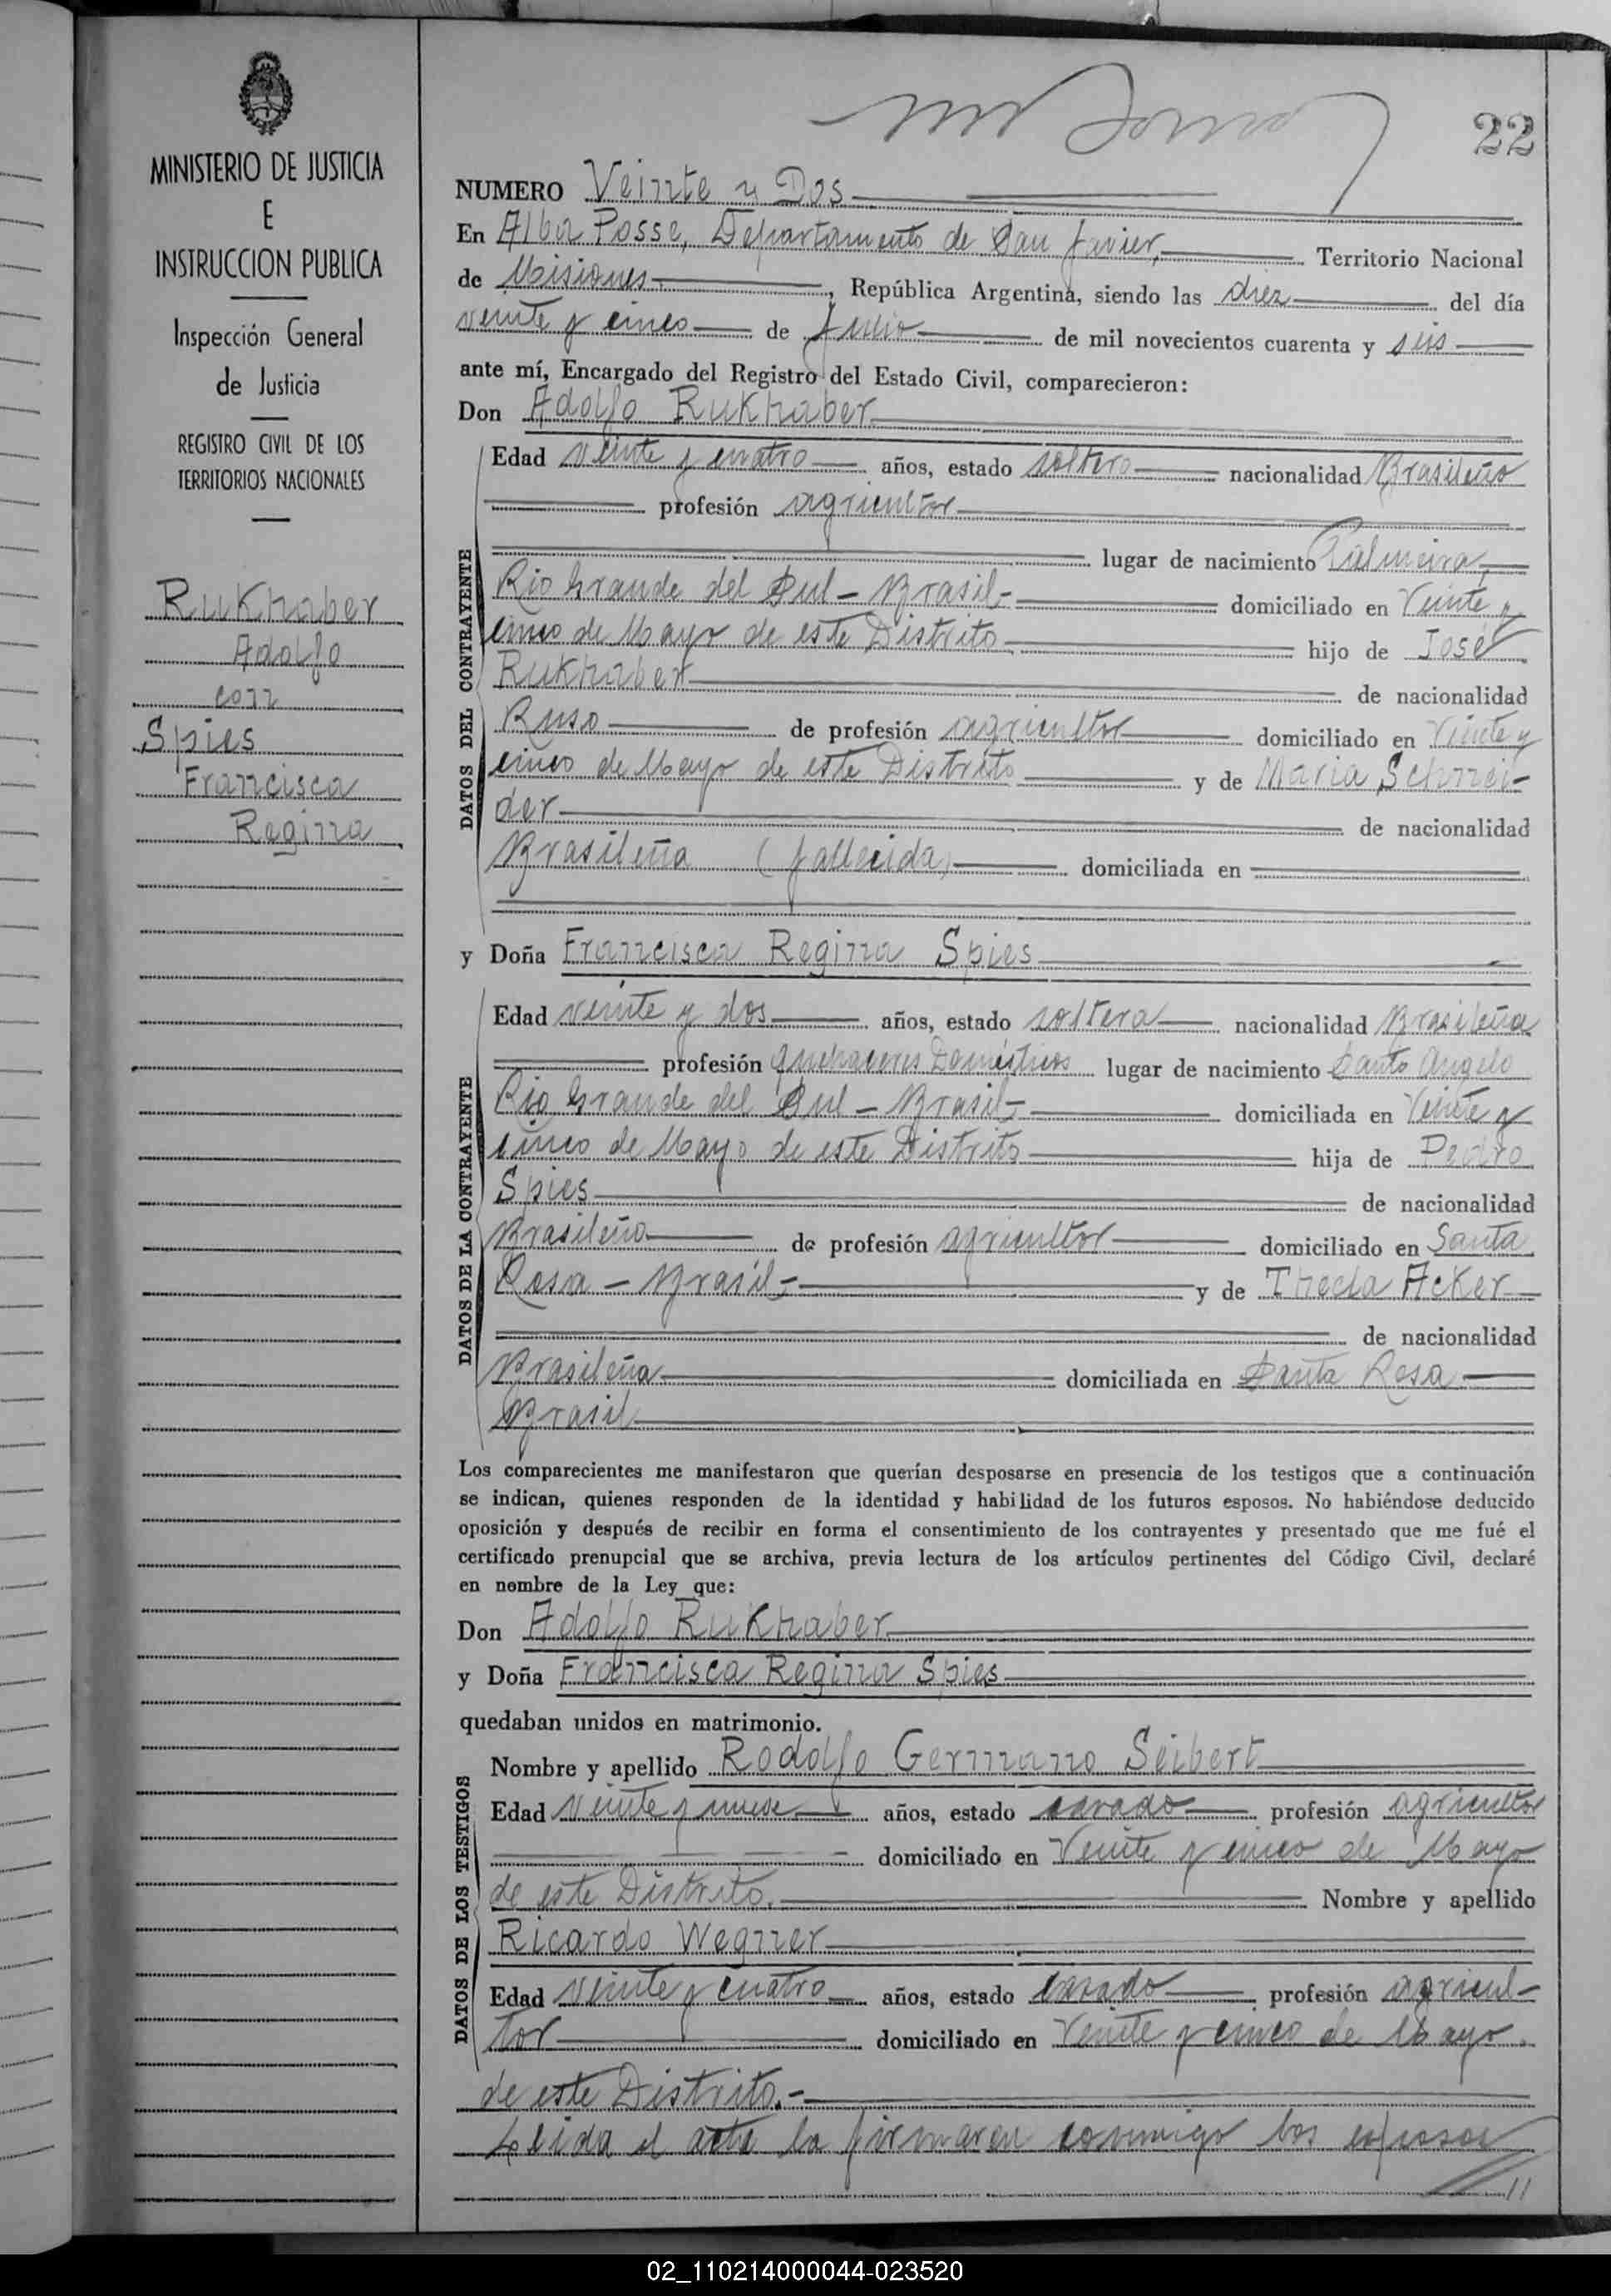 22
MINISTERIO DE JUSTICIA
E
INSTRUCCION PUBLICA
Inspección General
de Justicia
REGISTRO CIVIL DE LOS
TERRITORIOS NACIONALES
RukHaber
Adolfo
con
Spies
Francisca
Regina
NUMERO Veinte y Dos
En Alba Posse, Departamento de San Javier, Territorio Nacional
de Misiones, República Argentina, siendo las diez del día
veinte y cinco de Julio de mil novecientos cuarenta y seis
ante mí, Encargado del Registro del Estado Civil, comparecieron:
Don Adolfo RukHaber
DATOS DEL CONTRAYENTE
Edad veinte y cuatro años, estado soltero nacionalidad Brasileño
profesión agricultor
lugar de nacimiento Palmeira,
Rio Grande del Sul - Brasil - domiciliado en Veinte y
cinco de Mayo de este Distrito hijo de José
RukHaber de nacionalidad
Ruso de profesión agricultor domiciliado en Veinte y
cinco de Mayo de este Distrito y de Maria Schnei-
der de nacionalidad
Brasileña (fallecida) domiciliada en
y Doña Francisca Regina Spies
DATOS DE LA CONTRAYENTE
Edad veinte y dos años, estado soltera nacionalidad Brasileña
profesión quehaceres Domésticos lugar de nacimiento Santo Angelo
Rio Grande del Sul - Brasil - domiciliada en Veinte y
cinco de Mayo de este Distrito hija de Pedro
Spies de nacionalidad
Brasileño de profesión agricultor domiciliado en Santa
Rosa - Brasil - y de Thecla Acker
de nacionalidad
Brasileña domiciliada en Santa Rosa
Brasil
Los comparecientes me manifestaron que querían desposarse en presencia de los testigos que a continuación
se indican, quienes responden de la identidad y habilidad de los futuros esposos. No habiéndose deducido
oposición y después de recibir en forma el consentimiento de los contrayentes y presentado que me fué el
certificado prenupcial que se archiva, previa lectura de los artículos pertinentes del Código Civil, declaré
en nombre de la Ley que:
Don Adolfo RukHaber
y Doña Francisca Regina Spies
quedaban unidos en matrimonio.
DATOS DE LOS TESTIGOS
Nombre y apellido Rodolfo Germano Seibert
Edad veinte y nueve años, estado casado profesión agricultor
domiciliado en Veinte y cinco de Mayo
de este Distrito. Nombre y apellido
Ricardo Wegner
Edad veinte y cuatro años, estado casado profesión agricul-
tor domiciliado en Veinte y cinco de Mayo
de este Distrito.-
Leida el acta la firmaron conmigo los esposos
//
02_110214000044-023520